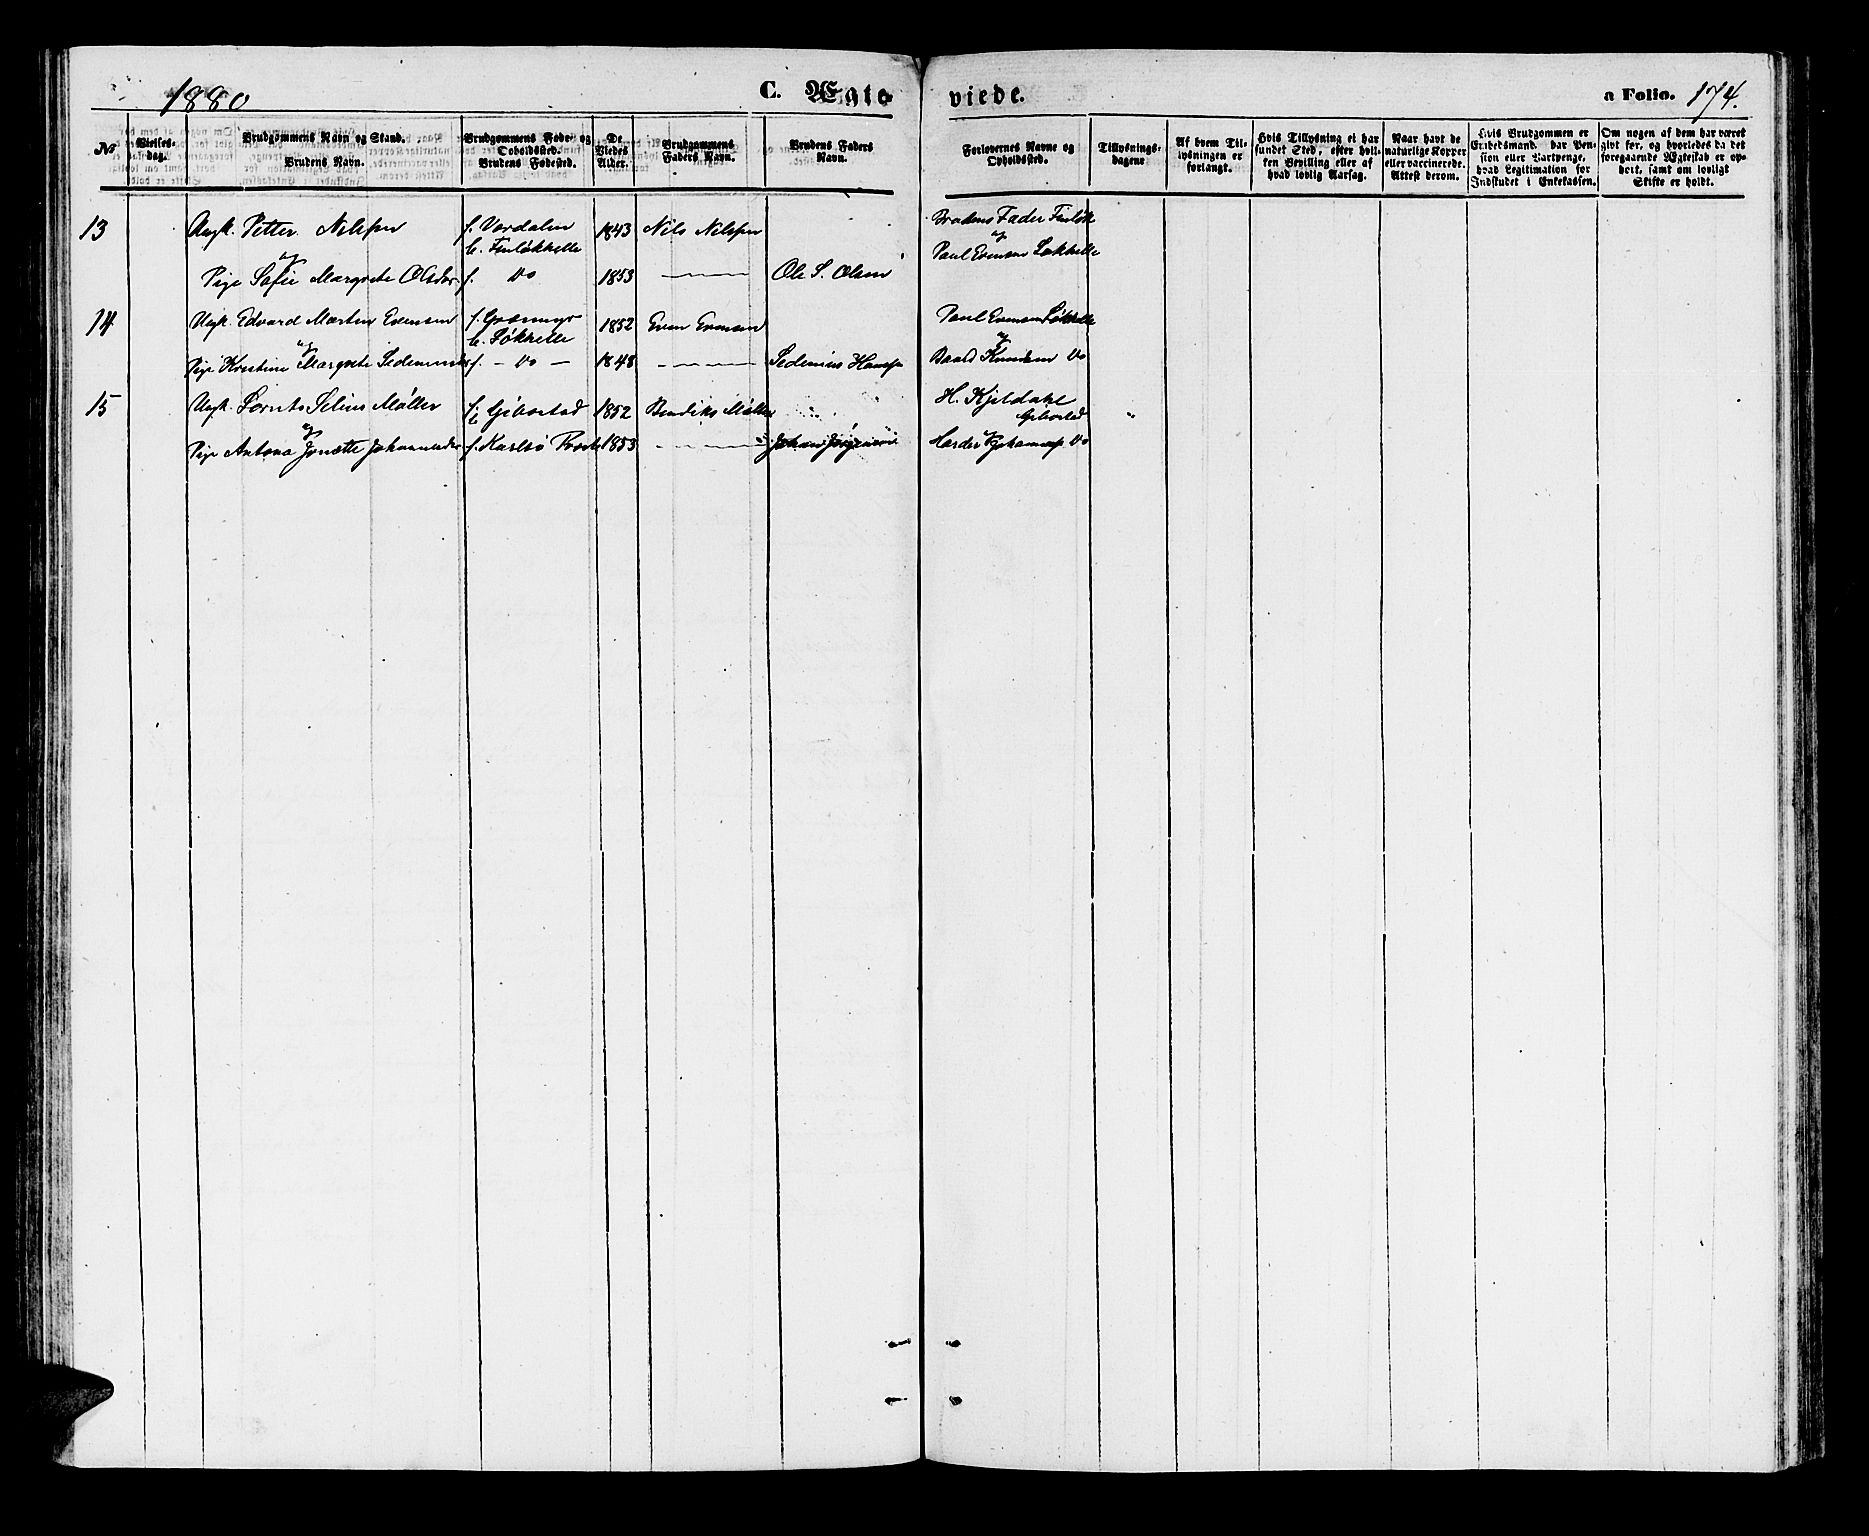 1880 C. Ægte viede. a Folio. 174.
№
Vielses-
dag.
Brudgommens Navn og Stand.
Brudens Navn.
Brudgommens Føde- og
Opholdssted.
Brudens Fødested.
De
Viedes
Alder.
Brudgommens
Faders Navn.
Brudens Faders
Navn.
Forlovernes Navne og
Opholdssted.
Tillysnings-
dagene
Af hvem Til-
lysningen er
forlangt.
Hvis Tillysning ei har
fundet Sted, efter hvil-
ken Bevilling eller af
hvad lovlig Aarsag.
Naar havt de
naturlige Kopper
eller vaccinerede.
Attest derom.
Hvis Brudgommen er
Enkedsmand, har Pen-
sion eller Vartpenge,
hvad Legitimation for
Indskudet i Enkekassen.
Om nogen af dem har været
givt før, og hvorledes da det
foregaaende Ægteskab er op-
hørt, samt om lovligt
Skifte er holdt.
13 Ungk. Petter Nilsen f. Værdalen 1843 Nils Nilsen Brudens Fader
b. Finløkhelle
og Paul Evensen Løkhelle
Pige Sofie Margrete Olsdat f. Do 1853 Ole S. Olsen
14 Ungk. Edvard Martin Evensen f. 1852 Even Evensen Paul Evensen Løkhelle
b. Løkhelle
og
Pige Kristine Margrete f. - Do - 1848 Sedenius Hans Baard Knudsen Do
15 Ungk. Lornts Møller f. Gibostad 1852 Bendiks Møller H. Kjeldahl
Gibostad "
og
Pige Antona Jonette f. Karlsø 1853 Johan Jørgensen Do